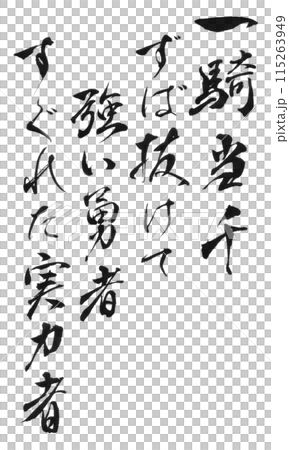 一騎当千
ずば抜けて
強い勇者
すぐれた実力者
115263949